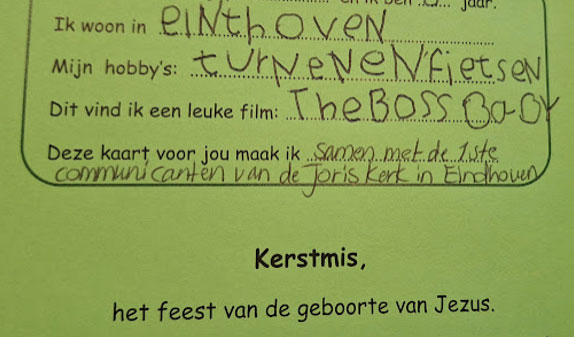 en ik ben ... jaar.
Ik woon in EINthOVEN
Mijn hobby's: tUrNeNeNfietsEN
Dit vind ik een leuke film: The BOSS BA-BY
Deze kaart voor jou maak ik samen met de 1ste
communicanten van de Joris kerk in Eindhoven
Kerstmis,
het feest van de geboorte van Jezus.